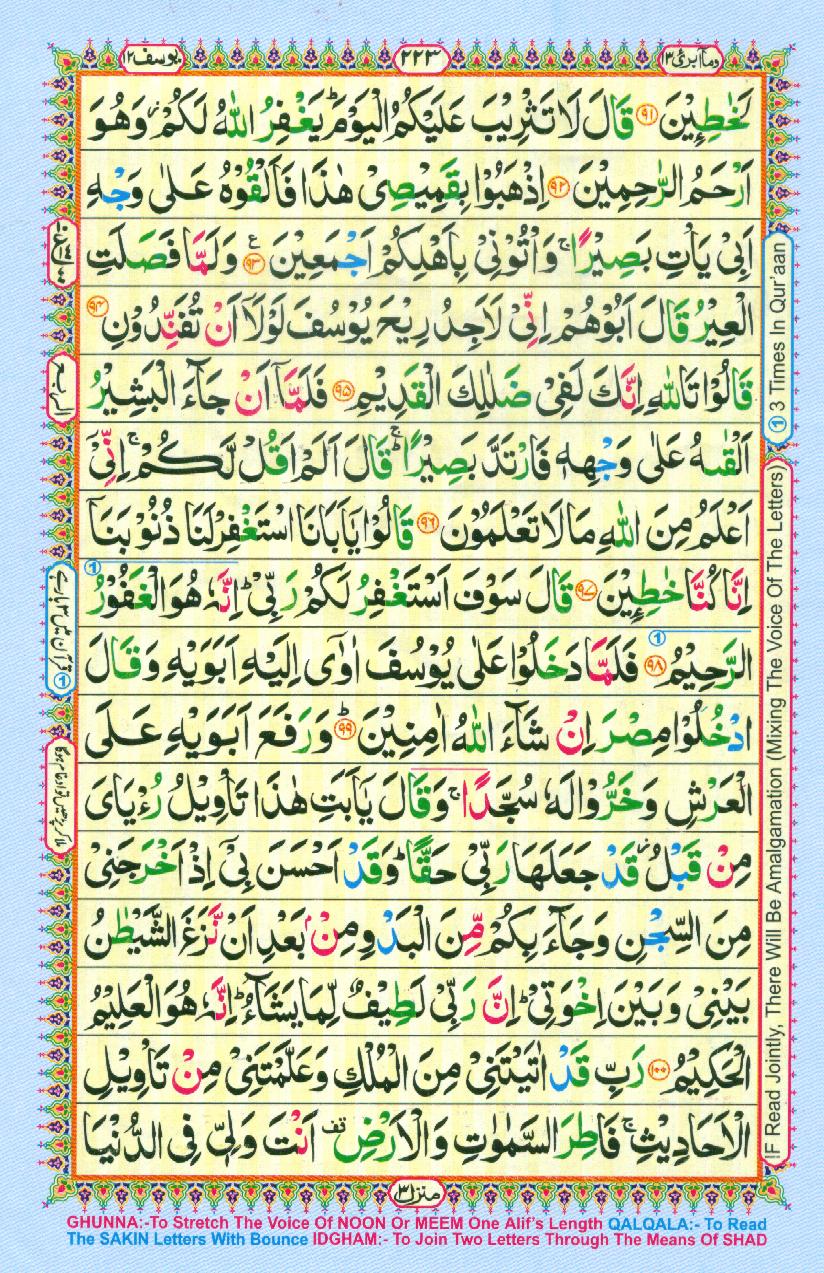 وما ابرئ ١٣
٢٢٣
يوسف ١٢
لَخٰطِـِٕيْنَ ﴿٩١﴾ قَالَ لَا تَثْرِيْبَ عَلَيْكُمُ الْيَوْمَ ؕ يَغْفِرُ اللّٰهُ لَكُمْ ؗ وَهُوَ
اَرْحَمُ الرّٰحِمِيْنَ ﴿٩٢﴾ اِذْهَبُوْا بِقَمِيْصِىْ هٰذَا فَاَلْقُوْهُ عَلٰى وَجْهِ
اَبِىْ يَاْتِ بَصِيْرًا ۚ وَاْتُوْنِىْ بِاَهْلِكُمْ اَجْمَعِيْنَ ﴿٩٣﴾ وَلَمَّا فَصَلَتِ
الْعِيْرُ قَالَ اَبُوْهُمْ اِنِّىْ لَاَجِدُ رِيْحَ يُوْسُفَ لَوْلَاۤ اَنْ تُفَنِّدُوْنِ ﴿٩٤﴾
قَالُوْا تَاللّٰهِ اِنَّكَ لَفِىْ ضَلٰلِكَ الْقَدِيْمِ ﴿٩٥﴾ فَلَمَّاۤ اَنْ جَآءَ الْبَشِيْرُ
اَلْقٰٮهُ عَلٰى وَجْهِهٖ فَارْتَدَّ بَصِيْرًا ۚ قَالَ اَلَمْ اَقُلْ لَّكُمْ ۚ اِنِّىْۤ
اَعْلَمُ مِنَ اللّٰهِ مَا لَا تَعْلَمُوْنَ ﴿٩٦﴾ قَالُوْا يٰۤاَبَانَا اسْتَغْفِرْ لَنَا ذُنُوْبَنَاۤ
اِنَّا كُنَّا خٰطِـِٕيْنَ ﴿٩٧﴾ قَالَ سَوْفَ اَسْتَغْفِرُ لَكُمْ رَبِّىْ ؕ اِنَّهٗ هُوَ الْغَفُوْرُ ①
الرَّحِيْمُ ﴿٩٨﴾ ① فَلَمَّا دَخَلُوْا عَلٰى يُوْسُفَ اٰوٰٓى اِلَيْهِ اَبَوَيْهِ وَقَالَ
ادْخُلُوْا مِصْرَ اِنْ شَآءَ اللّٰهُ اٰمِنِيْنَ ؕ ﴿٩٩﴾ وَرَفَعَ اَبَوَيْهِ عَلَى
الْعَرْشِ وَخَرُّوْا لَهٗ سُجَّدًا ۚ وَقَالَ يٰۤاَبَتِ هٰذَا تَاْوِيْلُ رُءْيَاىَ
مِنْ قَبْلُ ؗ قَدْ جَعَلَهَا رَبِّىْ حَقًّا ؕ وَقَدْ اَحْسَنَ بِىْۤ اِذْ اَخْرَجَنِىْ
مِنَ السِّجْنِ وَجَآءَ بِكُمْ مِّنَ الْبَدْوِ مِنْۢ بَعْدِ اَنْ نَّزَغَ الشَّيْطٰنُ
بَيْنِىْ وَبَيْنَ اِخْوَتِىْ ؕ اِنَّ رَبِّىْ لَطِيْفٌ لِّمَا يَشَآءُ ؕ اِنَّهٗ هُوَ الْعَلِيْمُ
الْحَكِيْمُ ﴿١٠٠﴾ رَبِّ قَدْ اٰتَيْتَنِىْ مِنَ الْمُلْكِ وَعَلَّمْتَنِىْ مِنْ تَاْوِيْلِ
الْاَحَادِيْثِ ۚ فَاطِرَ السَّمٰوٰتِ وَالْاَرْضِ ۫ قف اَنْتَ وَلِىّٖ فِى الدُّنْيَا
الربع
① قرآن میں ۳ بار ہے
① 3 Times In Qur'aan
IF Read Jointly, There Will Be Amalgamation (Mixing The Voice Of The Letters)
منزل ٣
GHUNNA:-To Stretch The Voice Of NOON Or MEEM One Alif's Length QALQALA:- To Read
The SAKIN Letters With Bounce IDGHAM:- To Join Two Letters Through The Means Of SHAD